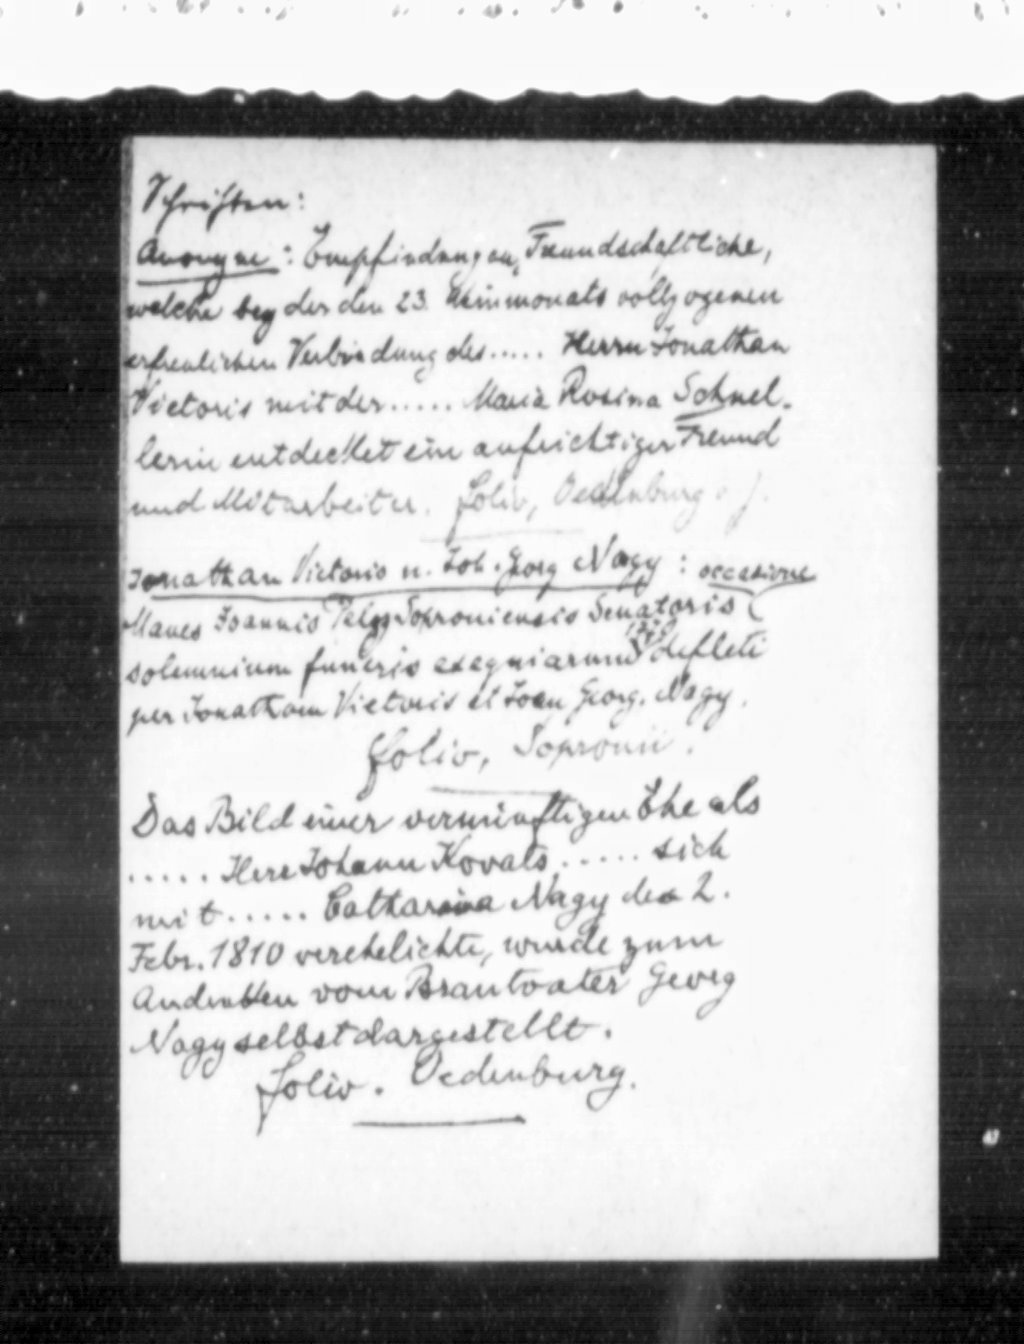 Schriften:
Anonym: Empfindungen, Freundschaftliche,
welche bey der den 23. Weinmonats vollzogenen
erfreulichen Verbindung des..... Herrn Jonathan
Victoris mit der..... Maria Rosina Schnel-
lerin entdecket ein aufrichtiger Freund
und Mitarbeiter. folio, Oedenburg
Jonathan Victoris u. Joh. Georg Nagy: occasione
Manes Joannis Soproniensis Senatoris (
solemnium funeris exequiarum defleti
per Jonatham Victoris et Joan Georg. Nagy.
folio, Sopronii.
Das Bild einer vernünftigen Ehe als
..... Herr Johann Kovats ..... sich
mit ..... Catharina Nagy den 2.
Febr. 1810 verehelichte, wurde zum
Andenken vom Brautvater Georg
Nagy selbst dargestellt.
folio. Oedenburg.